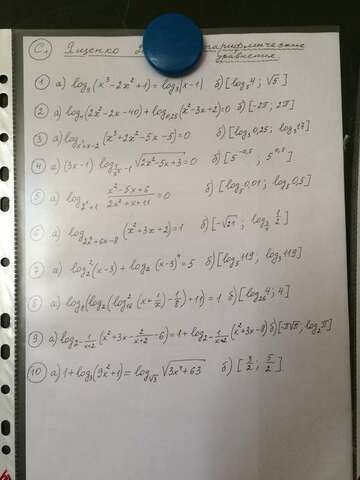 С1 Ященко логарифмические
уравнения
1 а) log₅(x³-2x²+1)=log₅(x-1) б) [log₅4; √5]
2 а) log₄(2x²-2x-40)+log₀,₂₅(x²-3x+2)=0 б) [-2π; 2π]
3 а) log_{x²+x-2}(x³+2x²-5x-5)=0 б) [log₃0,25; log₃17]
4 а) (3x-1) √(2x²-5x+3)=0 б) [5^{-0,5}; 5^{0,5}]
5 а) log_{2^x+1} (x²-5x+6)/(2x²+x+11)=0 б) [log₅0,01; log₅0,5]
6 а) log_{2x²+6x-8}(x²+3x+2)=1 б) [-√21; 1/2]
7 а) log₂²(x-3)+log₂(x-3)⁴=5 б) [log₃119, log₅119]
8 а) (log₂(log₁₆(x+1/2)-1/8)+11)=1 б) [log₂₆4; 4]
9 а) log_{2-1/(x+2)}(x²+3x-2/(x+2)-6)=1+log_{2-1/(x+2)}(x²+3x-8) б) [-π√π; log₂π]
10 а) 1+log₃(9x²+1)=log_{√3}√(3x⁴+63) б) [3/2; 5/2]